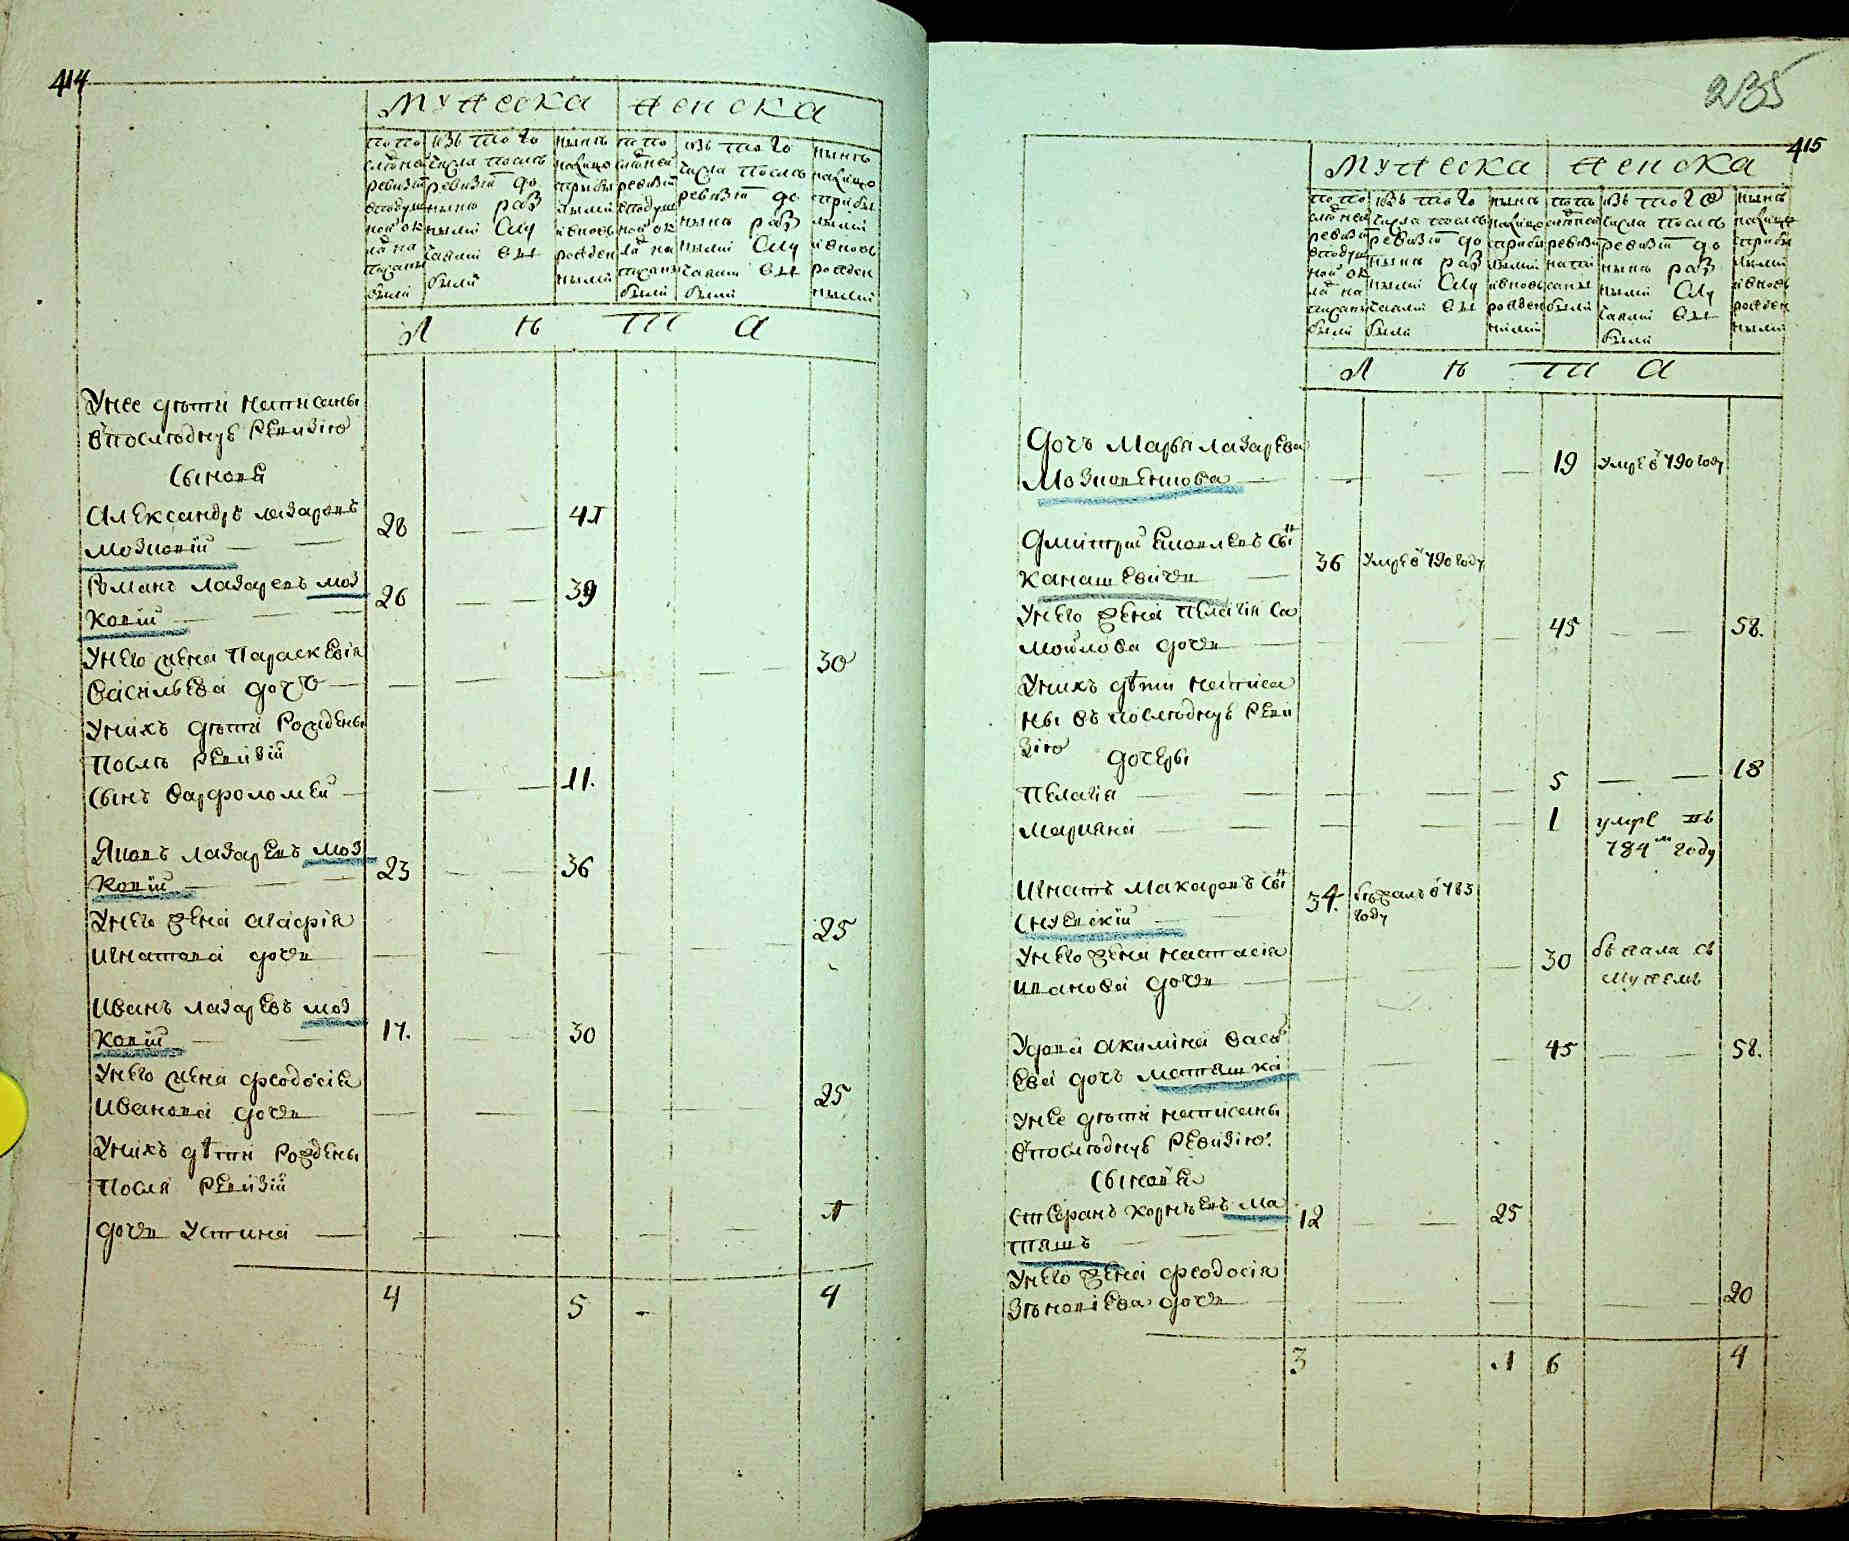 414
мужеска женска
по по следней ревизии в подушной оклад написаны были
изъ того числа после ревизии до ныне разными случаями выбыли
ныне налицо с прибылыми и вновь рожденными
по последней ревизии в подушной оклад написаны были
изъ того числа после ревизии до ныне разными случаями выбыли
ныне налицо с прибылыми и вновь рожденными
лѣта
унее дѣти написаны
впослѣднуѣ ревизїю
сыновя
Александръ лазаревъ
мозновїй 28 41
Романъ лазаревъ моз
ковїй 26 39
унего жена Параскевія
Васильева дочъ 30
унихъ дѣти рождены
послѣ ревизїй
сынъ варфоломей 11.
Яковъ лазаревъ моз
ковїй 23 36
унего жена агафія
игнатова дочь 25
иванъ лазаревъ моз
ковїй 17. 30
унего жена феодосія
иванова дочь 25
унихъ дѣти рождены
посля ревизїй
дочь устина 1
4 5 - 4
235
415
мужеска женска
по последней ревизии в подушной оклад написаны были
изъ того числа после ревизии до ныне разными случаями выбыли
ныне налицо с прибылыми и вновь рожденными
по последней ревизии написаны были
изъ того числа после ревизии до ныне разными случаями выбыли
ныне налицо с прибылыми и вновь рожденными
лѣта
Дочъ Марья лазарева
19 умре в 790 году
Дмитрий яковлевъ сын
канашевича 36 умре в 790 году
унего жена пелагія са
мойлова дочь 45 58.
унихъ дѣти написа
ны въ послѣднуѣ реви
зїю дочеры
Пелагія 5 18
мариана 1 умре въ
784м году
игнатъ макаровъ сын
34. бежалъ в 783
году
унего жена настасія
иванова дочь 30 бѣжала съ
мужемъ
удова акилина васи
ева дочъ маташка 45 58.
унее дѣти написаны
впослѣднуѣ ревизїю.
сыновя
стефанъ корнѣевъ ма
ташъ 12 25
унего жена феодосія
зѣновіева дочь 20
3 1 6 4